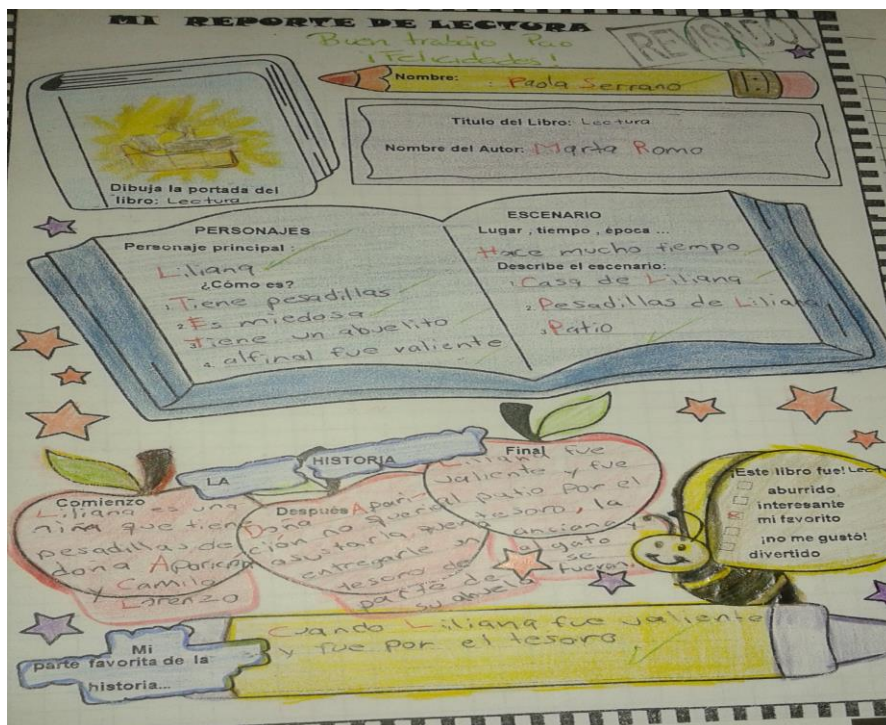 MI REPORTE DE LECTURA
Buen trabajo Pao
¡Felicidades!
REVISADO
Nombre: Paola Serrano
Titulo del Libro: Lectura
Nombre del Autor: Marta Romo
Dibuja la portada del
libro: Lectura
PERSONAJES
Personaje principal:
Liliana
¿Cómo es?
1. Tiene pesadillas
2. Es miedosa
3. Tiene un abuelito
4. alfinal fue valiente
ESCENARIO
Lugar , tiempo , época ...
Hace mucho tiempo
Describe el escenario:
1. Casa de Liliana
2. Pesadillas de Liliana
3. Patio
LA HISTORIA
Comienzo
Liliana es una
niña que tiene
pesadillas de
doña Aparición
y Camilo
Lorenzo
Después Apari-
Doña ción no quería
asustarla, quería
entregarle un
tesoro de
parte de
su abuelo
Final
Liliana fue
valiente y fue
al patio por el
tesoro, la
anciana y
el gato
se
fueron.
¡Este libro fue! Lect
aburrido
interesante
mi favorito
¡no me gustó!
divertido
Mi
parte favorita de la
historia...
Cuando Liliana fue valiente
y fue por el tesoro